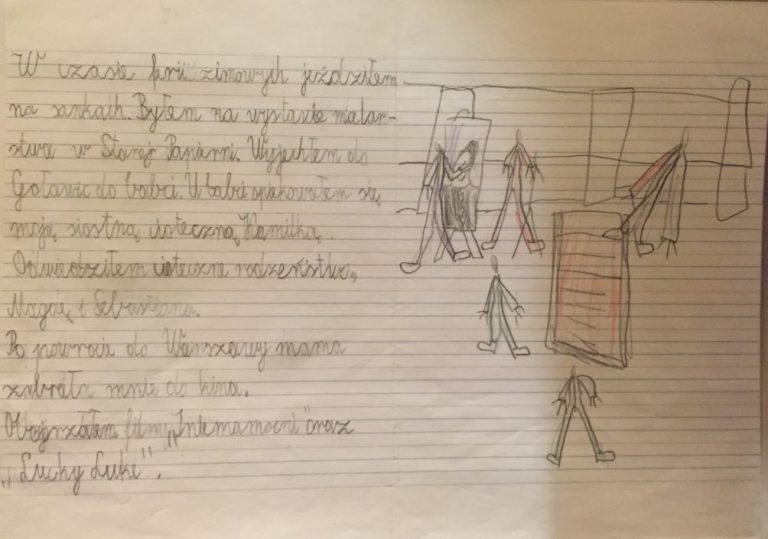 W czasie ferii zimowych jeździłem
na sankach. Byłem na wystawie malar-
stwa w Starej Papierni. Wyjechałem do
do babci. U babci opiekowałem się
moją siostrą cioteczną, Kamilką.
Odwiedziłem cioteczne rodzeństwo,
Magdę i Sebastiana.
Po powrocie do Warszawy mama
zabrała mnie do kina.
Obejrzałem filmy oraz
„Lucky Luke".